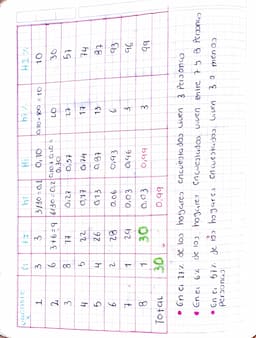 variable fi Fi hi Hi hi% HI%
1 3 3 3/30=0,1 0,10 0,10×100=10 10
2 6 3+6=9 6/30=0,2 0,10+0,20=0,30 20 30
3 8 17 0,27 0,57 27 57
4 5 22 0,17 0,74 17 74
5 4 26 0,13 0,87 13 87
6 2 28 0,06 0,93 6 93
7 1 29 0,03 0,96 3 96
8 1 30 0,03 0,99 3 99
Total 30 0,99
• En el 27% de los hogares encuestados viven 3 personas
• En el 6% de los hogares encuestados viven entre 7 y 8 personas
• En el 57% de los hogares encuestados viven 3 o menos
personas